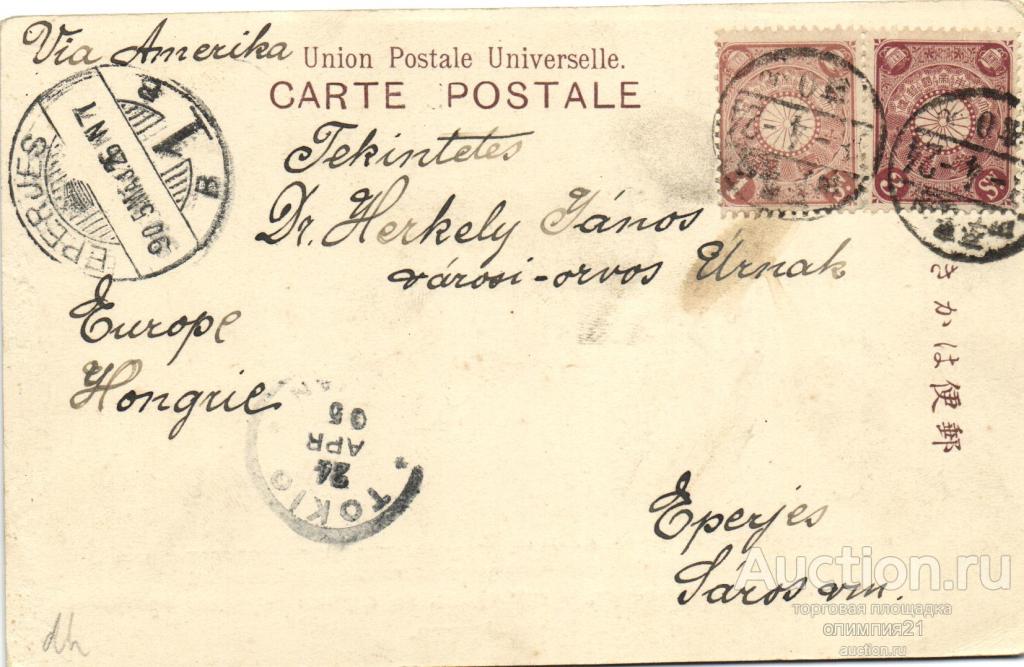 Via Amerika
Union Postale Universelle.
CARTE POSTALE
Tekintetes
Dr. Herkely János
városi-orvos Úrnak
Europe
Hongrie
Eperjes
Sáros vm.
きかは便郵
EPERJES
B 1 B
TOKIO
24
APR
05
Auction.ru
торговая площадка
олимпия21
auction.ru